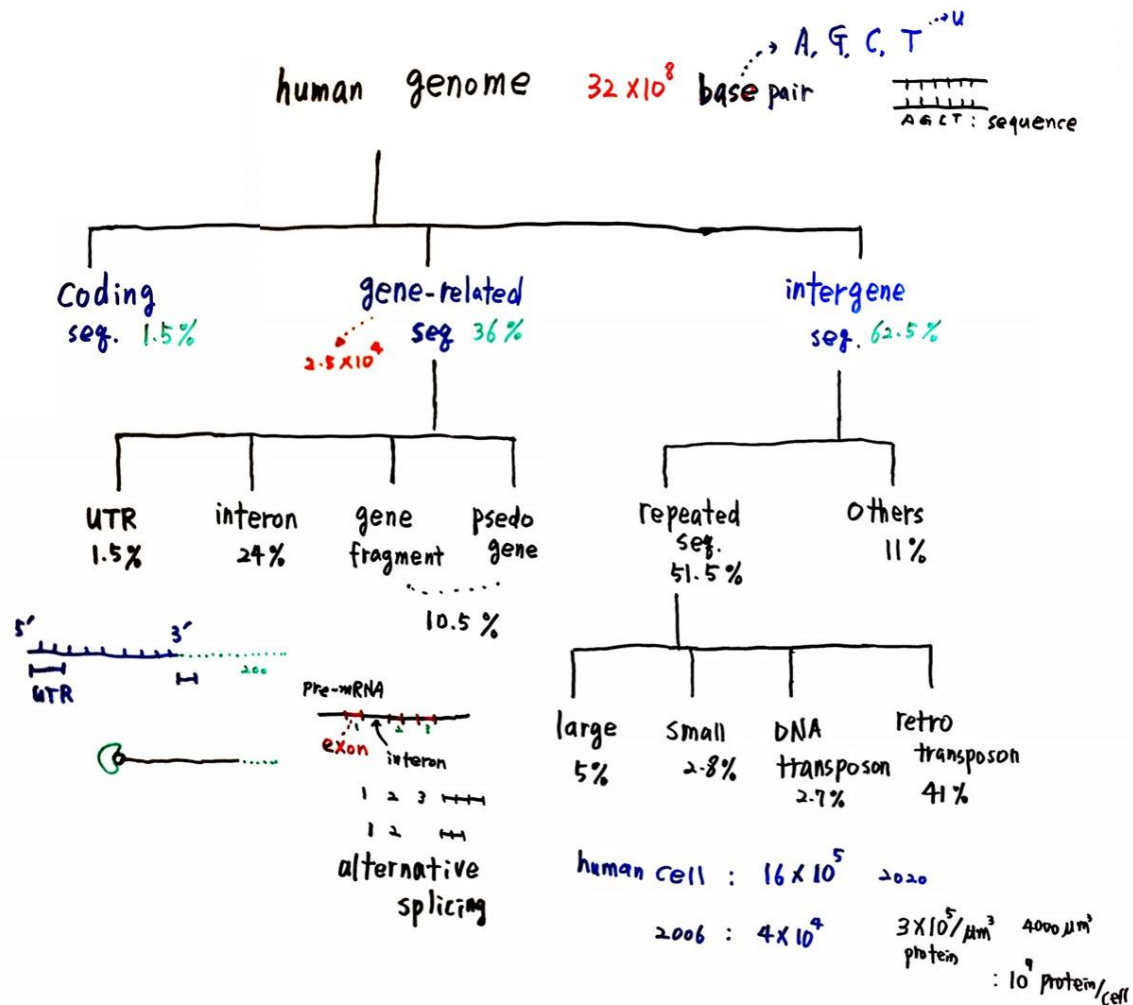 A, G, C, T → u
human genome 32×10⁸ base pair
A G C T : sequence
coding
seq. 1.5%
gene-related
seq 36%
2.5×10⁴
intergene
seq. 62.5%
UTR
1.5%
interon
24%
gene
fragment
psedo
gene
10.5%
repeated
seq.
51.5%
others
11%
5' 3'
200
UTR
pre-mRNA
1 2 3
exon
interon
1 2 3
1 2
alternative
splicing
large
5%
small
2.8%
DNA
transposon
2.7%
retro
transposon
41%
human cell : 16×10⁵ 2020
2006 : 4×10⁴
3×10⁵/μm³ 4000 μm³
protein
: 10⁹ protein/cell